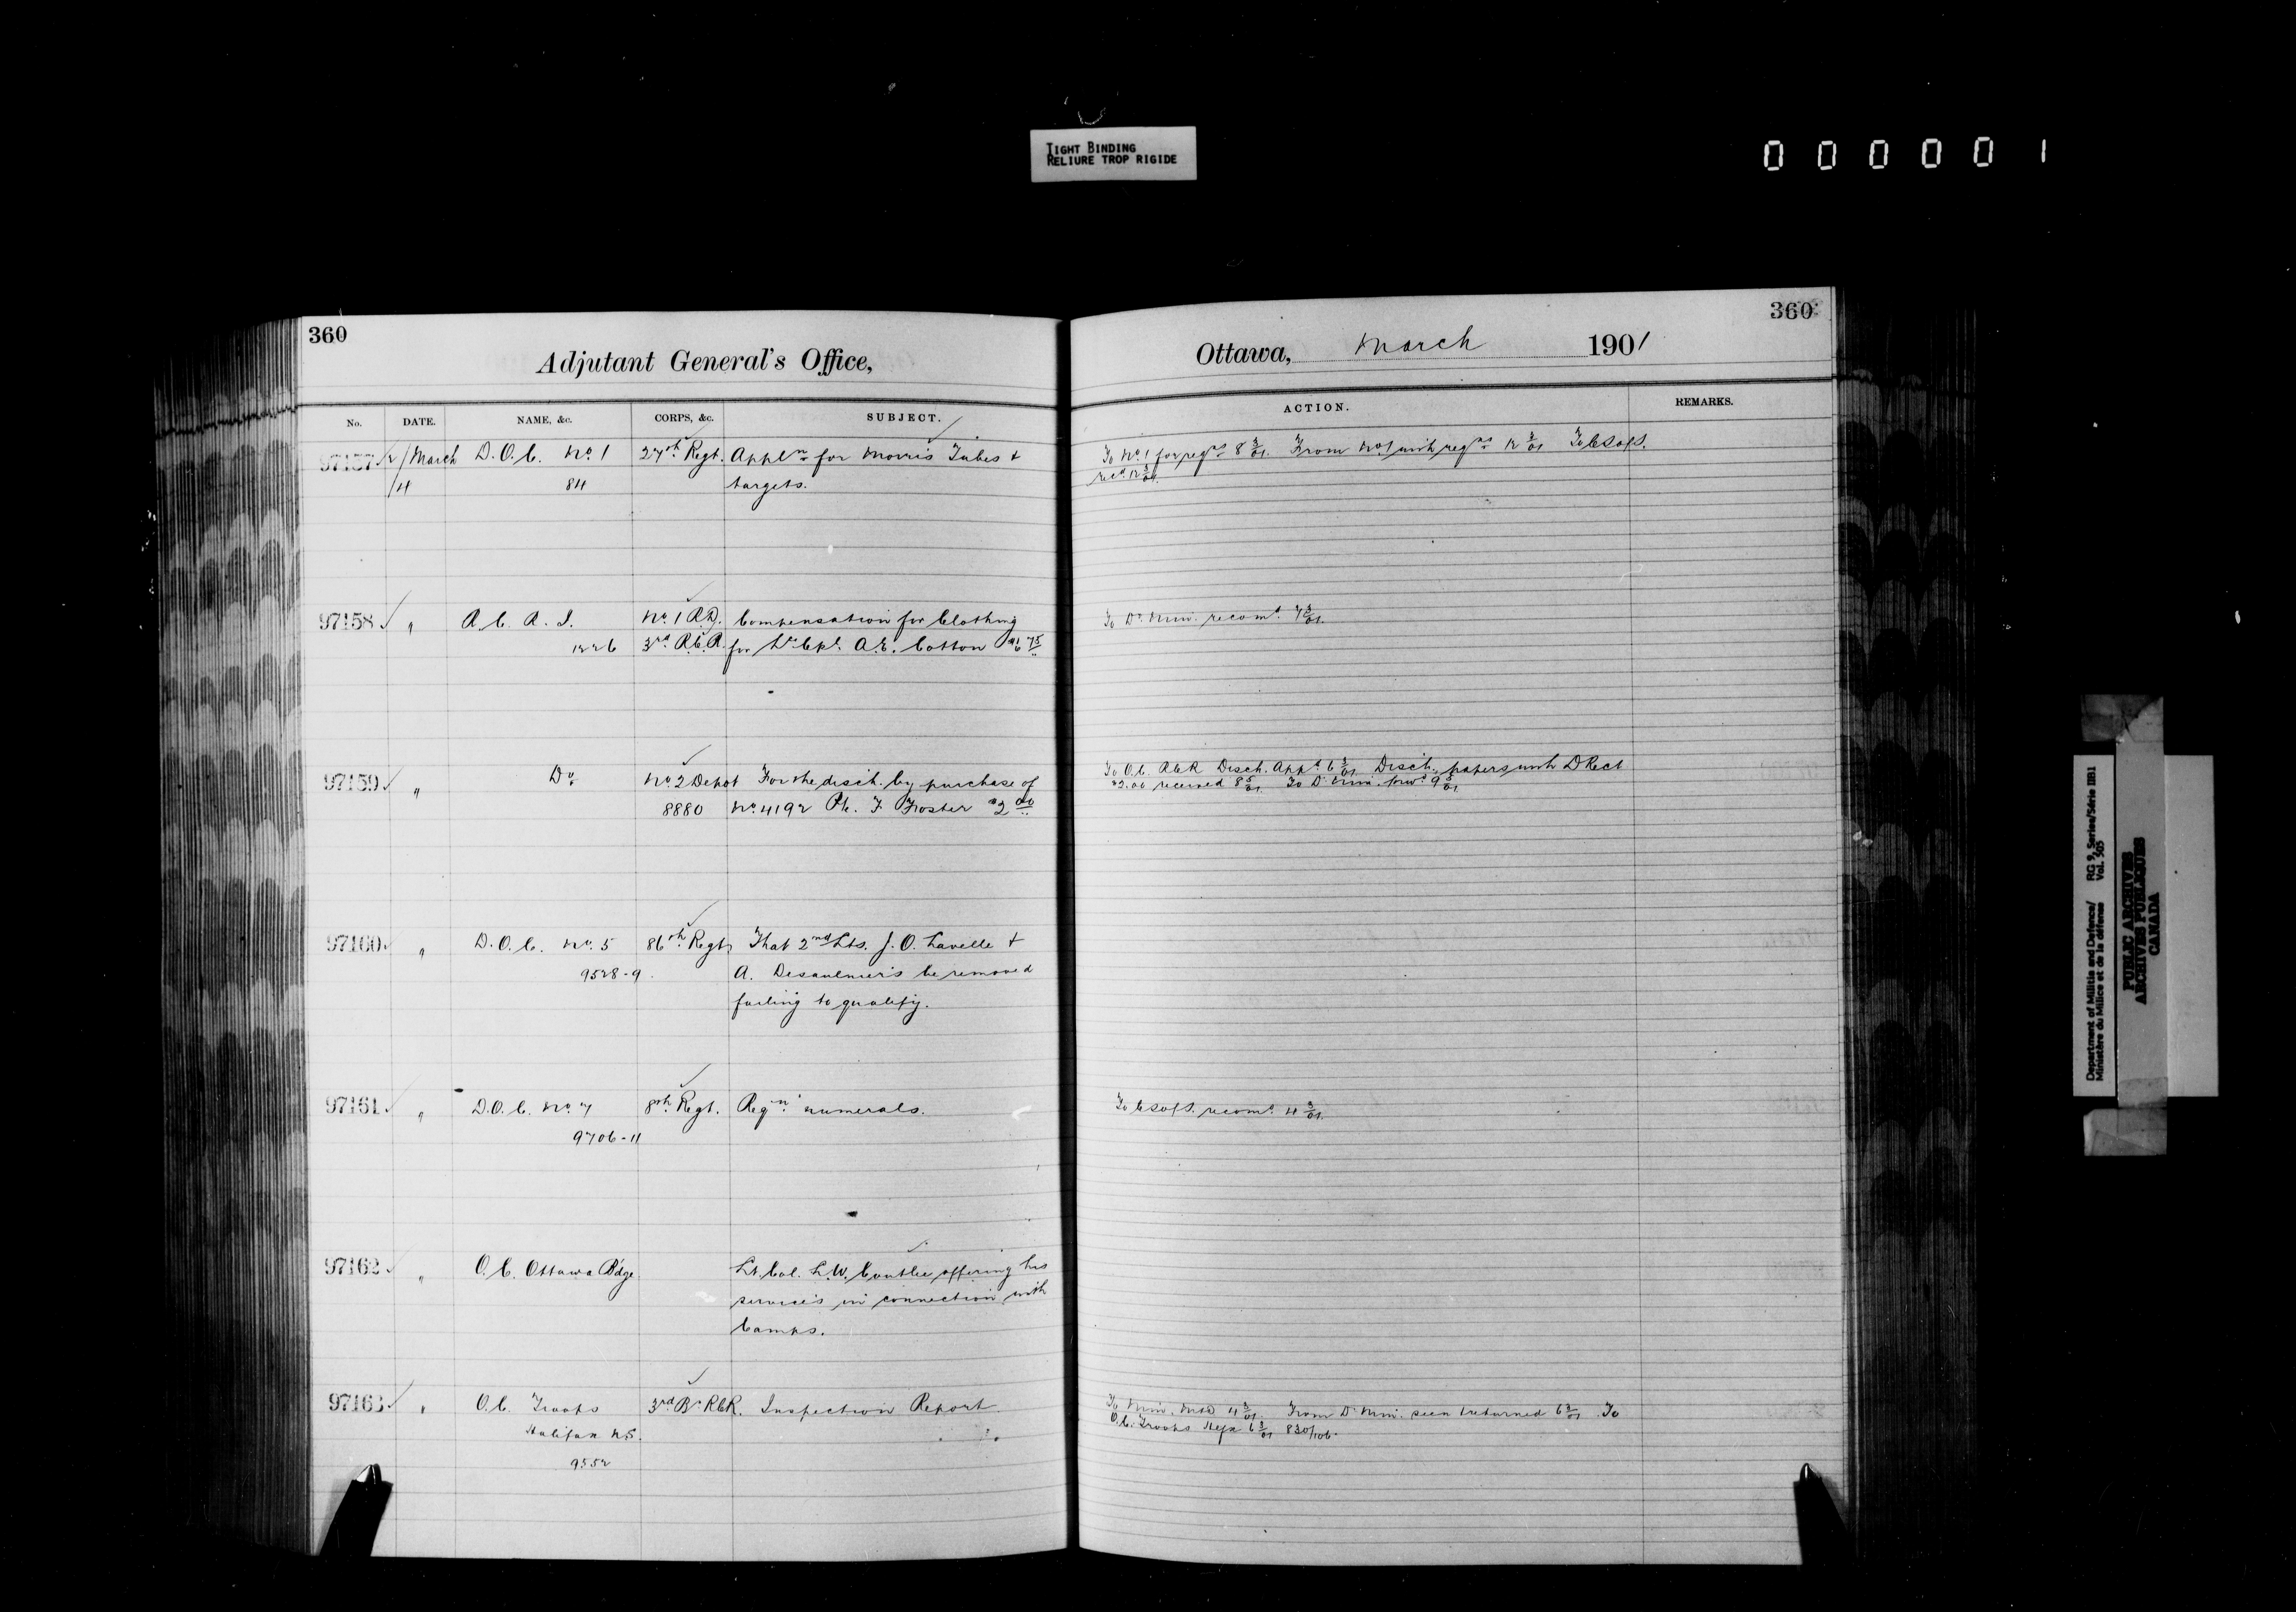 TIGHT BINDING
RELIURE TROP RIGIDE
0 0 0 0 0 1
360
Adjutant General's Office,
No. DATE. NAME, &c. CORPS, &c. SUBJECT.
97157 /March D.O.C. No. 1 27th Regt. Appln for Morris Tubes +
/4 84 targets.
97158 " R.C.R.I. No. 1 R.D. Compensation for Clothing
1226 3rd R.C.R. for Lce Cpl. A.E. Cotton $6.75
97159 " Do No. 2 Depot For the disch. by purchase of
8880 No. 4192 Pte. F. Foster $2.00
97160 " D.O.C. No. 5 86th Regt. That 2nd Lts. J.O. Lavelle +
9528-9. A. Desaulniers be removed
failing to qualify.
97161 " D.O.C. No. 7 8th Regt. Reqn numerals.
9706-11
97162 " O.C. Ottawa Bdge. Lt. Col. L.W. Coutlee offering his
services in connection with
Camps.
97163 " O.C. Troops 3rd Bn R.C.R. Inspection Report
Halifax N.S.
9552
360
Ottawa, March 1901
ACTION. REMARKS.
To No. 1 for reqns 8 3/01. From No. 1 with reqns 12 3/01 To C.S. of S.
recd 12 3/01.
To D. Min. recomd 7 3/01.
To O.C. RCR Disch. Appd 6 3/01 Disch. papers with D Rect
$2.00 received 8 5/01 To D. Min. forwd 9 5/01
To C.S. of S. recomd 4 3/01.
To Min. 4 3/01. From D. Min. seen + returned 6 3/01. To
O.C. Troops Hfx 6 3/01 830/106.
Department of Militia and Defence/ RG 9, Series/Série IIB1
Ministère du Milice et de la défense Vol. 505
PUBLIC ARCHIVES
ARCHIVES PUBLIQUES
CANADA